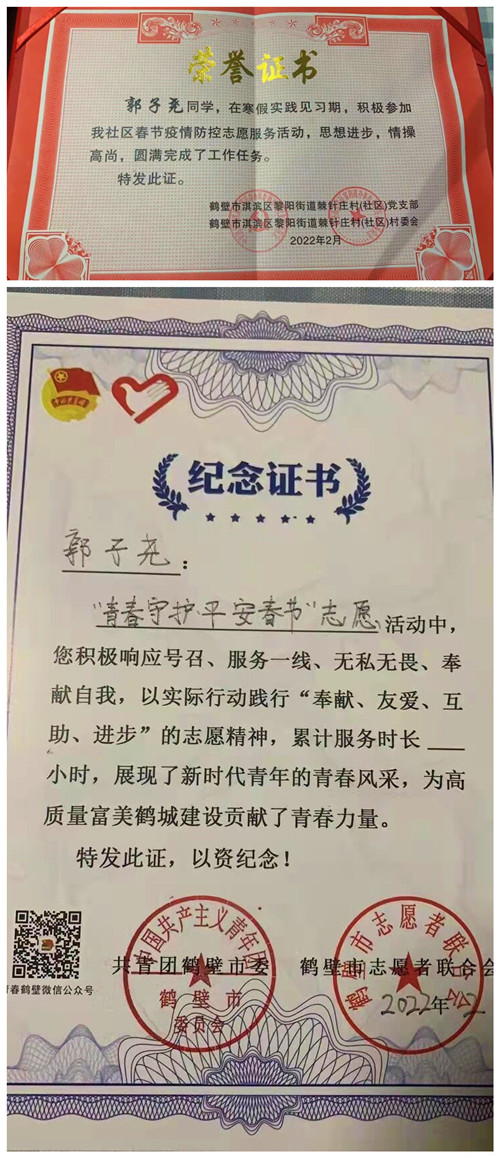 荣誉证书
郭子尧同学，在寒假实践见习期，积极参加
我社区春节疫情防控志愿服务活动，思想进步，情操
高尚，圆满完成了工作任务。
特发此证。
鹤壁市淇滨区黎阳街道棘针庄村(社区)党支部
鹤壁市淇滨区黎阳街道棘针庄村(社区)村委会
2022年2月
纪念证书
郭子尧：
“青春守护·平安春节”志愿活动中，
您积极响应号召、服务一线、无私无畏、奉
献自我，以实际行动践行“奉献、友爱、互
助、进步”的志愿精神，累计服务时长
小时，展现了新时代青年的青春风采，为高
质量富美鹤城建设贡献了青春力量。
特发此证，以资纪念！
中国共产主义青年团
鹤壁市
委员会
鹤壁市志愿者联合会
共青团鹤壁市委 鹤壁市志愿者联合会
青春鹤壁微信公众号
2022年